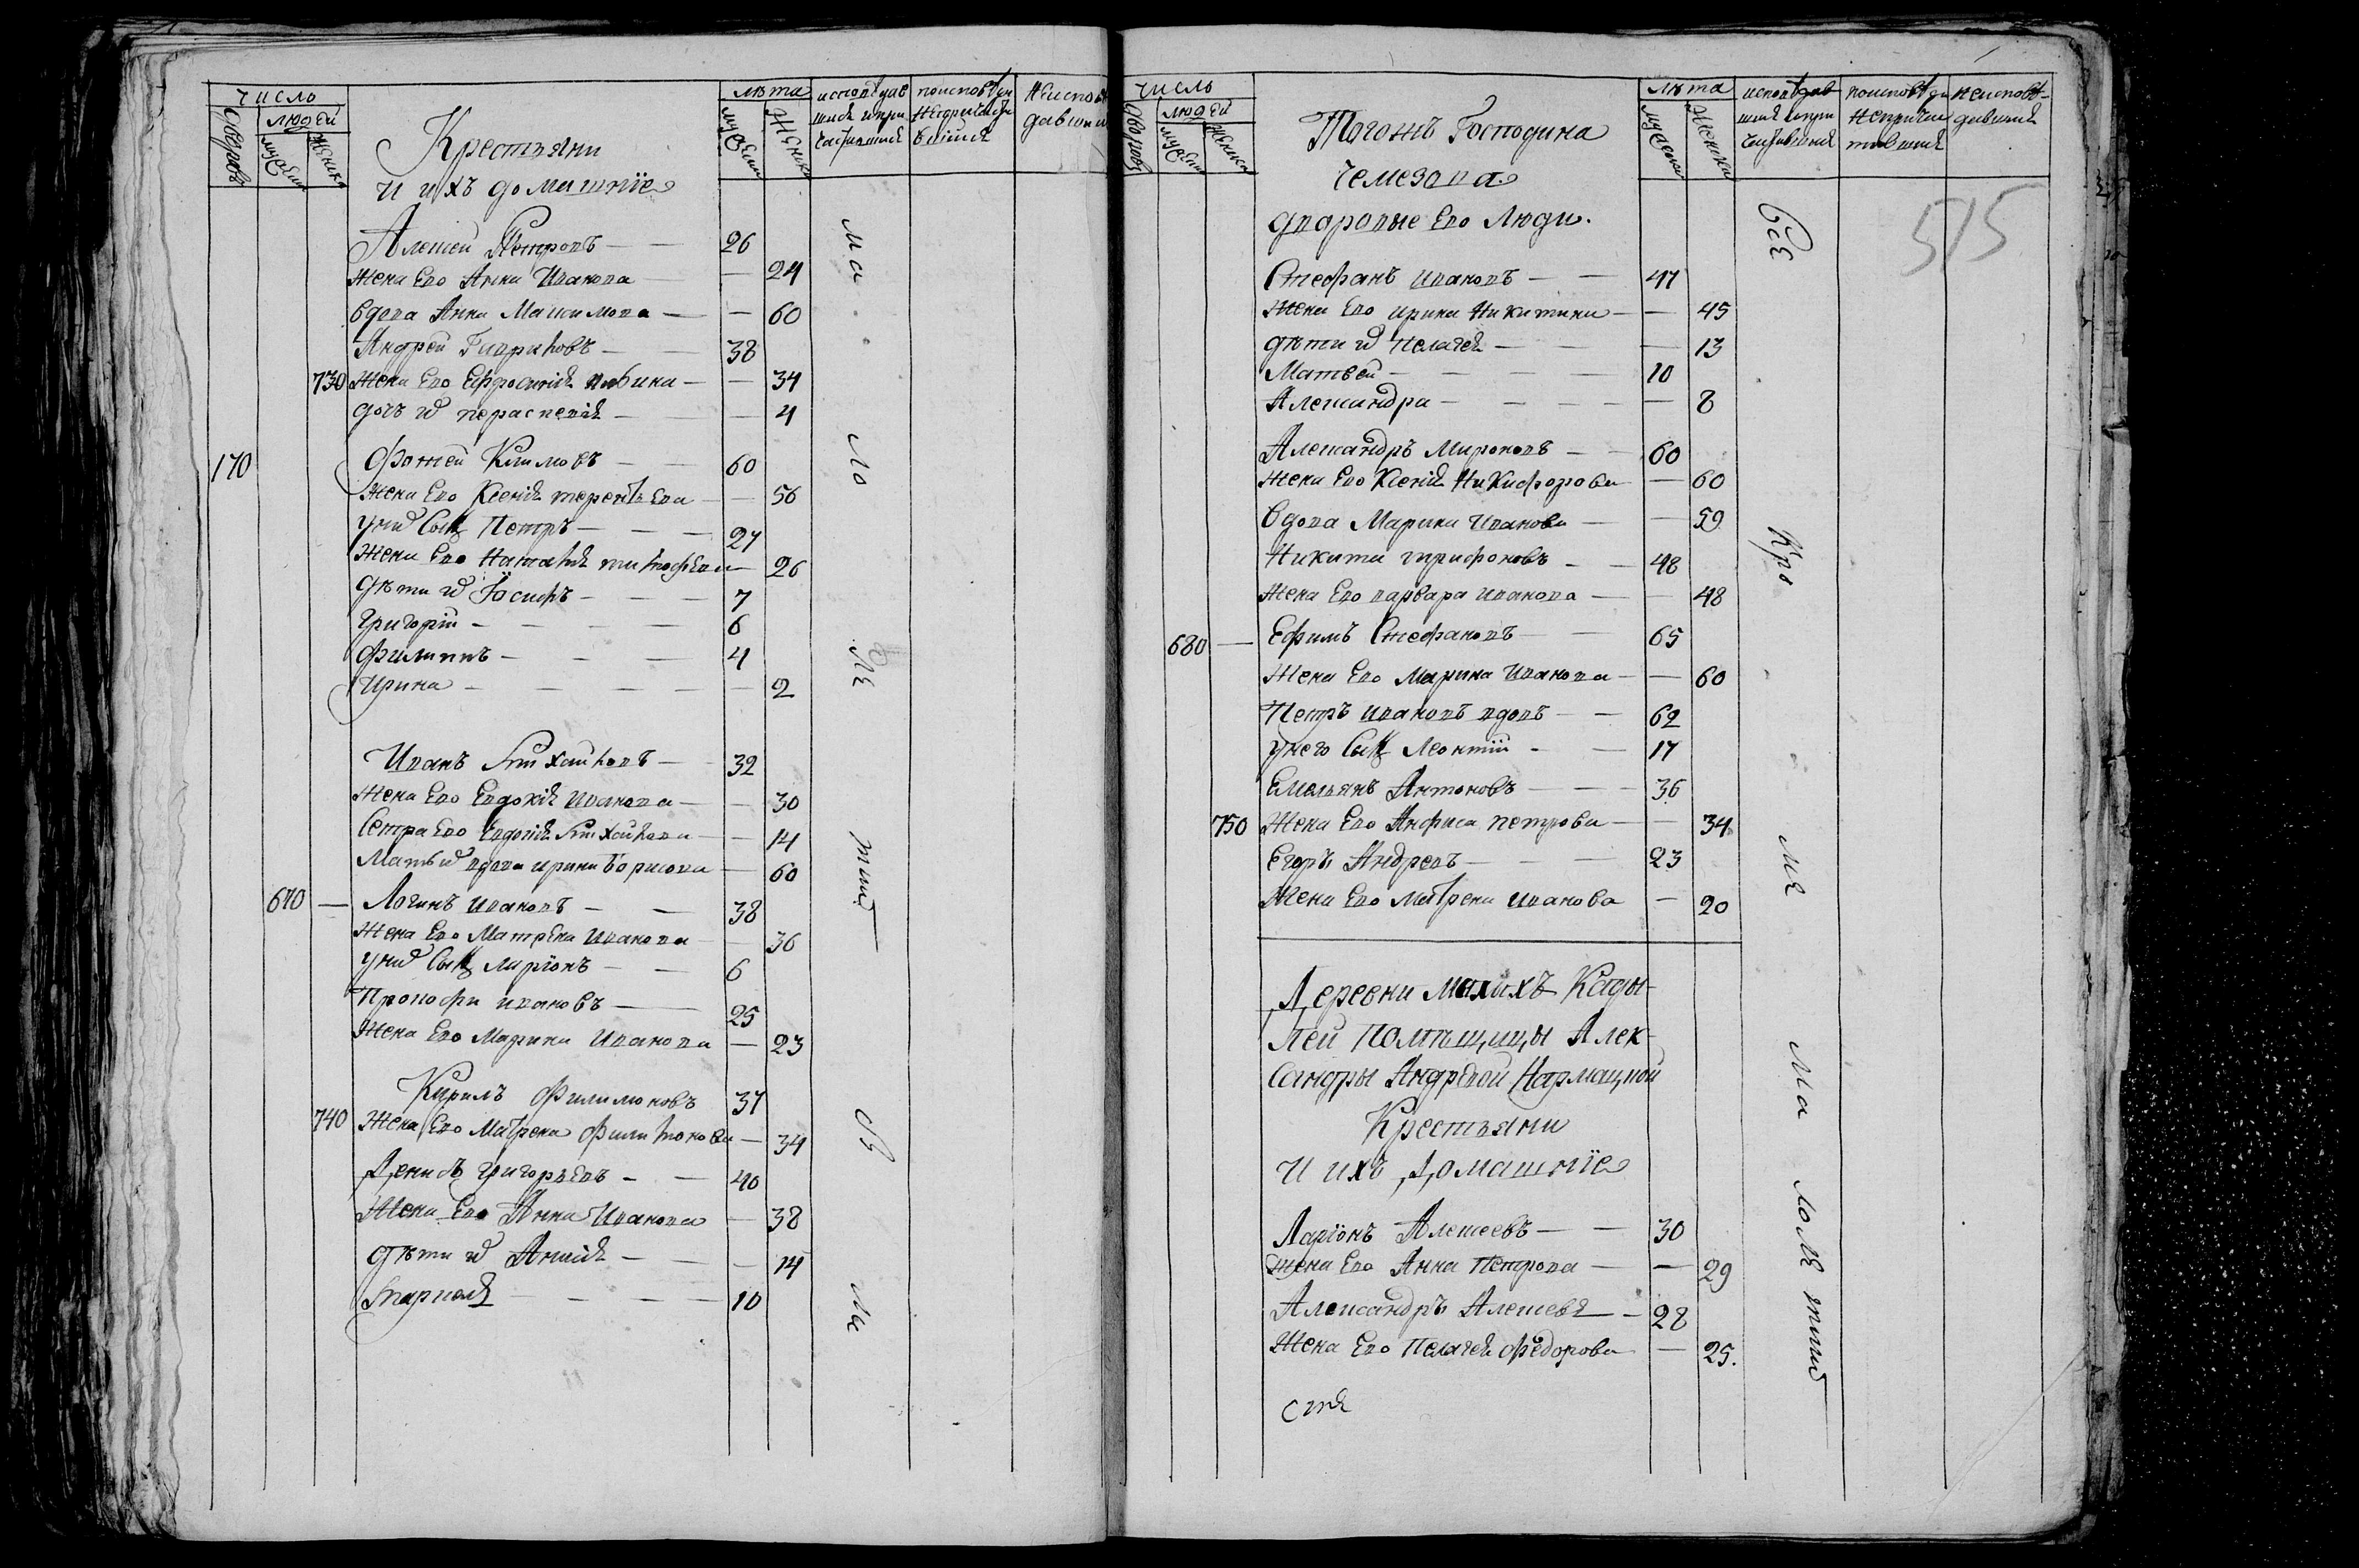 число
людей
дворовъ
мужеск
женск
Крестьяни
и ихъ домашнїе
лѣта
мужеск
женск
исповѣдав
шихся и при
частившихся
поисповѣдан
непричасти
вшихся
неисповѣ
давших
Алексей Петровъ — 26
Жена Его Анна Иванова — 24
Вдова Анна Максимова — 60
Андрей Гавриловъ — 38
730 Жена Его Ефросинія — 34
дочь их Пераскевія — 4
170 Фатей Климовъ — 60
Жена Его Ксенія Терентьева — 56
у них Сынъ Петръ — 27
Жена Его Наталія Тимофѣева — 26
дѣти их Іосифъ — 7
Григорій — 6
Филиппъ — 4
Ирина — 2
Иванъ Михайловъ — 32
Жена Его Евдокія Иванова — 30
Сестра Его Евдокія Михайлова — 14
Мать их вдова Ирина Борисова — 60
670 — Логинъ Ивановъ — 38
Жена Его Матрена Иванова — 36
у них Сынъ Ларіонъ — 6
Прокофи Ивановъ — 25
Жена Его Марина Иванова — 23
Кирилъ Филимоновъ 37
740 Жена Его Матрена Филимонова — 34
Денисъ Григорьевъ — 40
Жена Его Анна Иванова — 38
дѣти их Анисія — 14
10
ма
ло
лѣ
тних
ов
число
людей
дворовъ
мужеск
женск
Тогожъ Господина
Чемезова
дворовые Ево Люди.
лѣта
мужеск
женски
исповѣдав
шихся и при
частившихся
поисповѣда
непричас
тившихся
неисповѣ-
давшихся
515
Стефанъ Ивановъ — 47
Жена Ево Ирина Никитина — 45
дѣти их Пелагея — 13
Матвей — 10
Александра — 8
Александръ Мироновъ — 60
Жена Ево Ксенія Никифорова — 60
Вдова Марина Иванова — 59
Никита Трифоновъ — 48
Жена Ево Варвара Иванова — 48
680 — Ефимъ Стефановъ — 65
Жена Ево Марина Иванова — 60
Петръ Ивановъ вдовъ — 62
У него Сынъ Леонтій — 17
Емельянъ Антоновъ — 36
750 Жена Ево Анфиса Петрова — 34
Егоръ Андревъ — 23
Жена Ево Матрена Иванова — 20
Деревни Малыхъ Кады-
лей Помѣщицы Алек-
сандры Андревой Нармацкой
Крестьяни
и ихъ Домашнїе
Ларіонъ Алексеевъ — 30
Жена Ево Анна Петрова — 29
Александръ Алексевъ — 28
Жена Ево Пелагея Федорова — 25.
Всѣ
Кро
мѣ
ма
лолѣ
тних